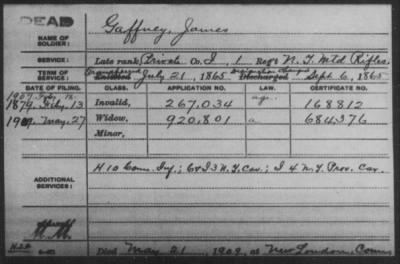 DEAD
NAME OF SOLDIER: Gaffney, James
SERVICE: Late rank Private Co. I, 1 Reg't N.Y. Mtd Rifles
TERM OF SERVICE: Transferred Enlisted July 21, 1865 Discharged Sept. 6, 1865
DATE OF FILING. CLASS. APPLICATION NO. LAW. CERTIFICATE NO.
1907. Feb. 12.
1879, Feby. 13 Invalid, 267.034 age. 168812
1909. May. 27 Widow, 920.801 a 684376
Minor,
ADDITIONAL SERVICES: H 10 Conn. Inf.; I 3 N.Y. Cav.; I 4 N.Y. Prov. Cav.
Died May 21, 1909, at New London, Conn